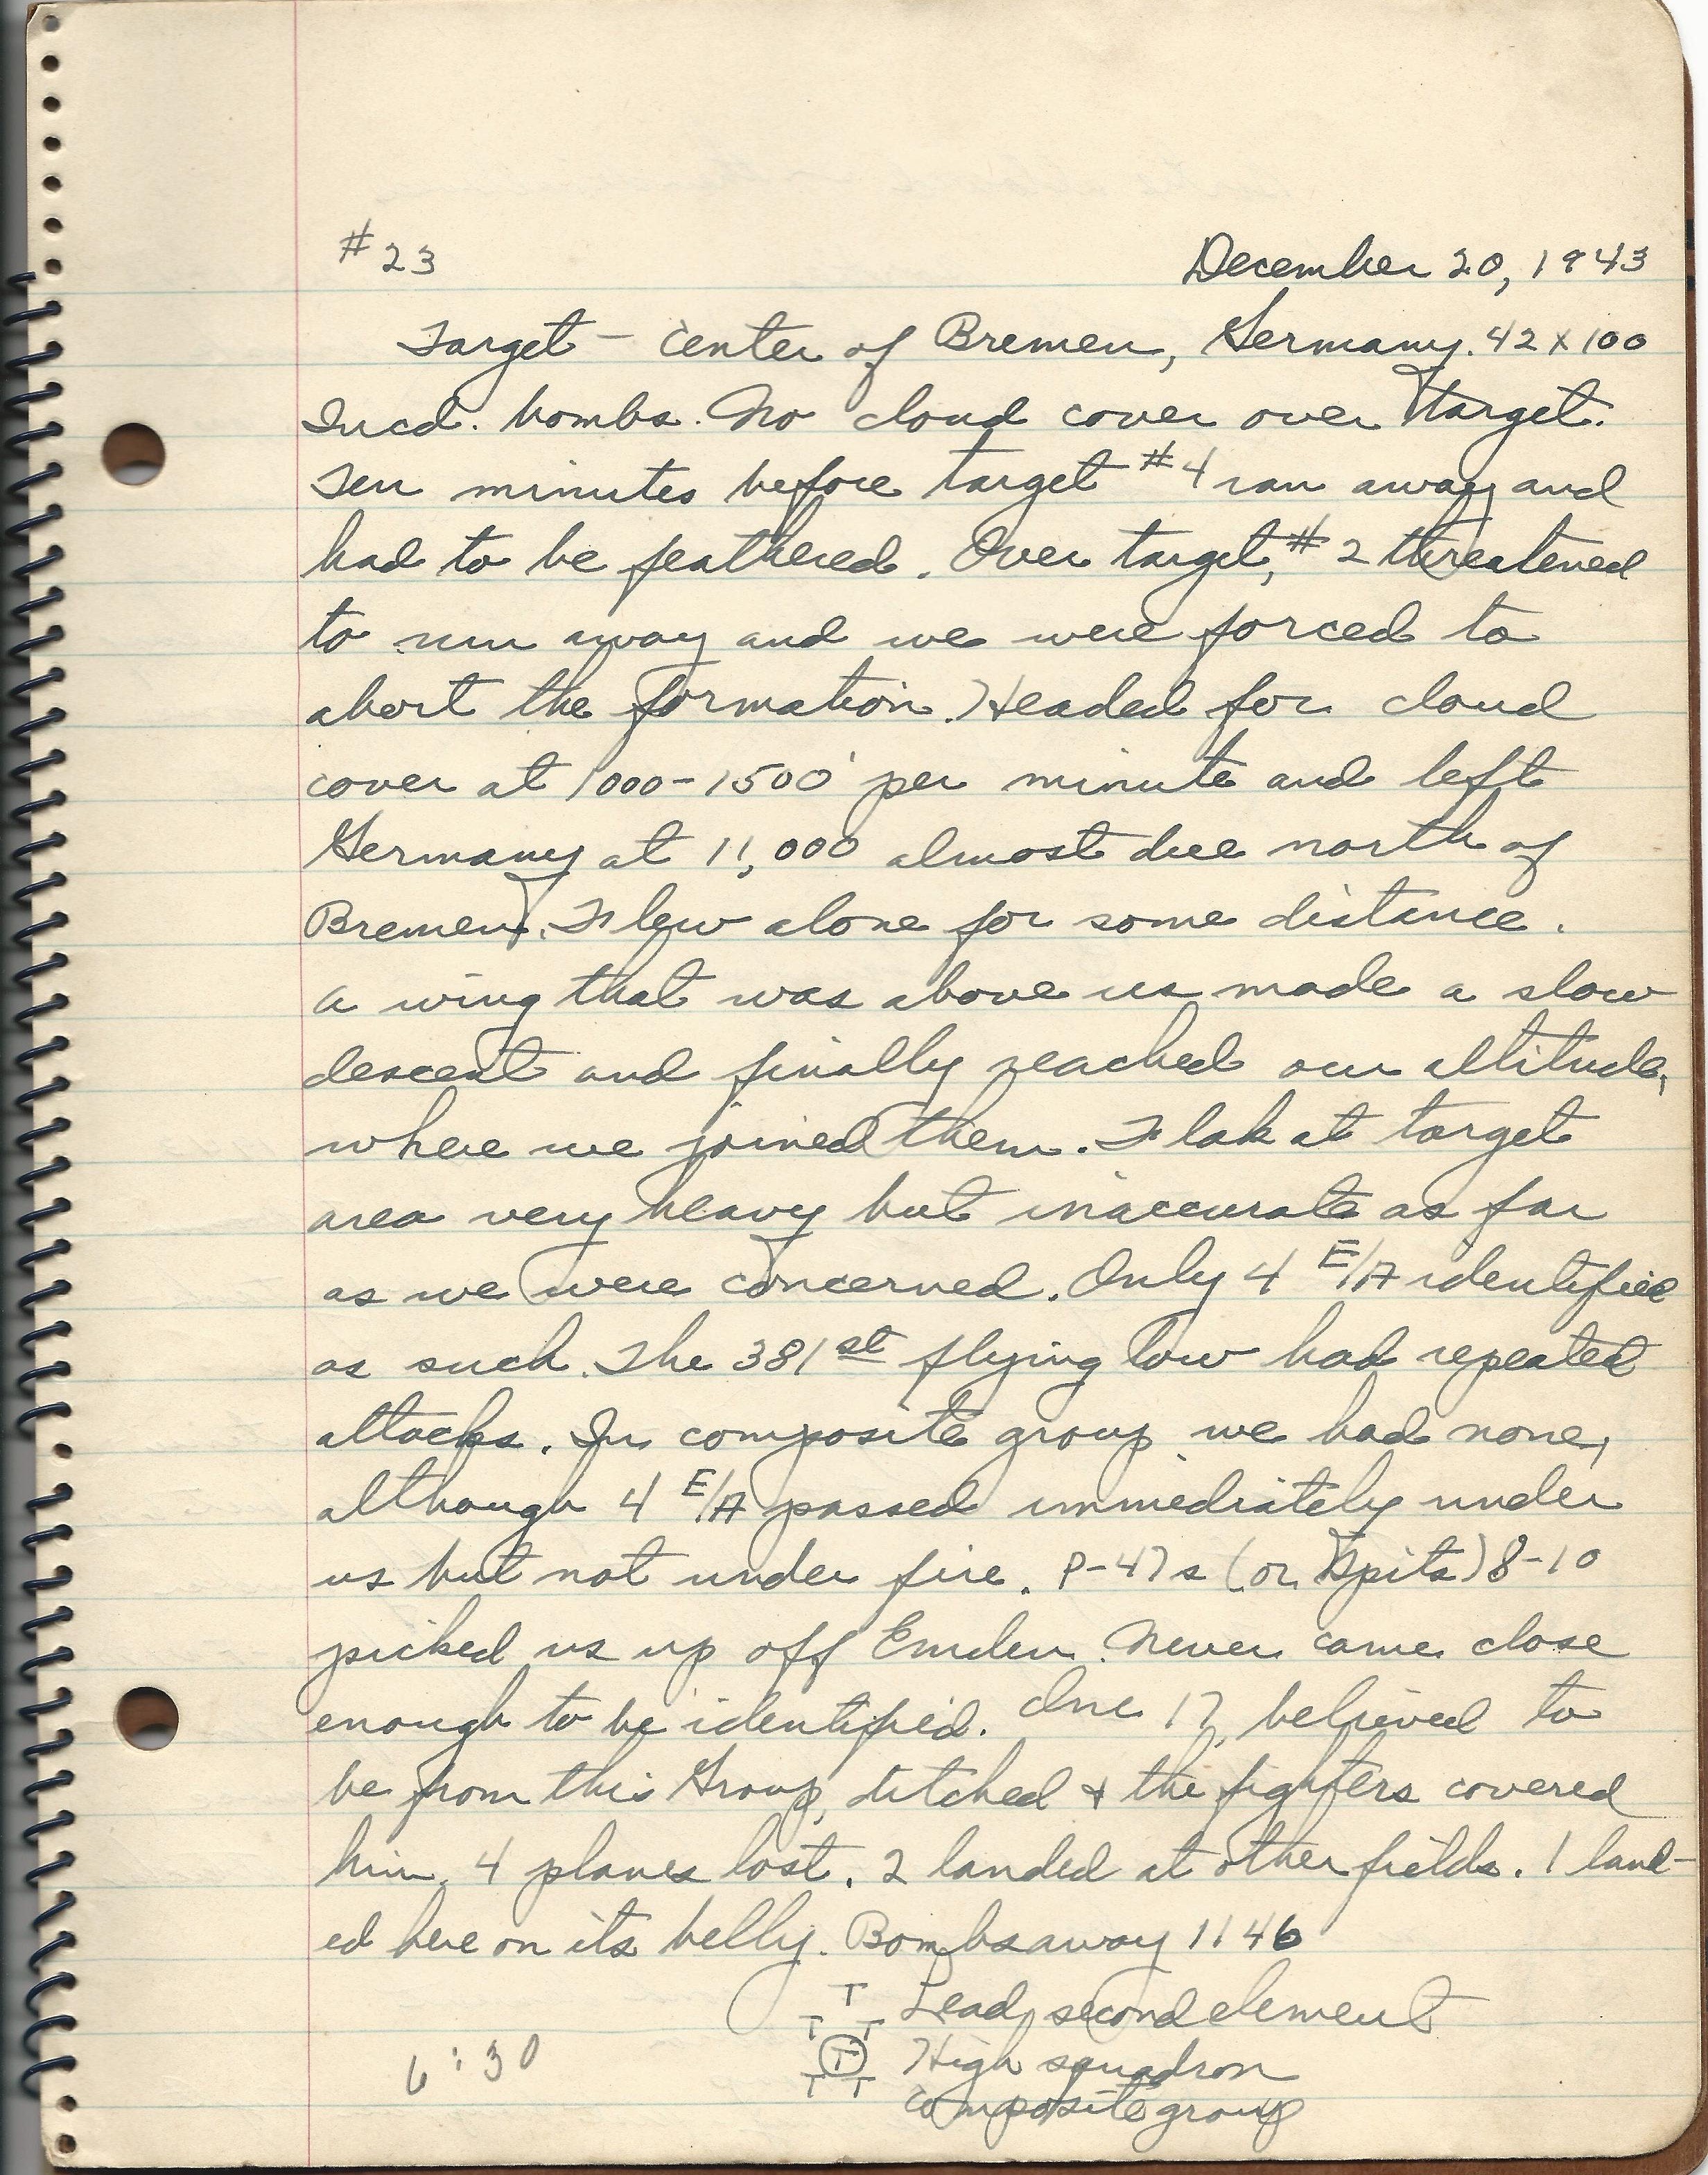 #23 December 20, 1943
Target - Center of Bremen, Germany. 42 x 100
Incd. bombs. No cloud cover over target.
Ten minutes before target #4 ran away and
had to be feathered. Over target, #2 threatened
to run away and we were forced to
abort the formation. Headed for cloud
cover at 1000-1500' per minute and left
Germany at 11,000 almost due north of
Bremen. Flew alone for some distance.
A wing that was above us made a slow
descent and finally reached our altitude,
where we joined them. Flak at target
area very heavy but inaccurate as far
as we were concerned. Only 4 E/A identified
as such. The 381st flying low had repeated
attacks. In composite group we had none,
although 4 E/A passed immediately under
us but not under fire. P-47s (or Spits) 8-10
picked us up off Emden. Never came close
enough to be identified. One 17, believed to
be from this Group, ditched & the fighters covered
him. 4 planes lost. 2 landed at other fields. 1 land-
ed here on its belly. Bombs away 1146
T Lead, second element
T T
T High squadron
T T composite group
6:30